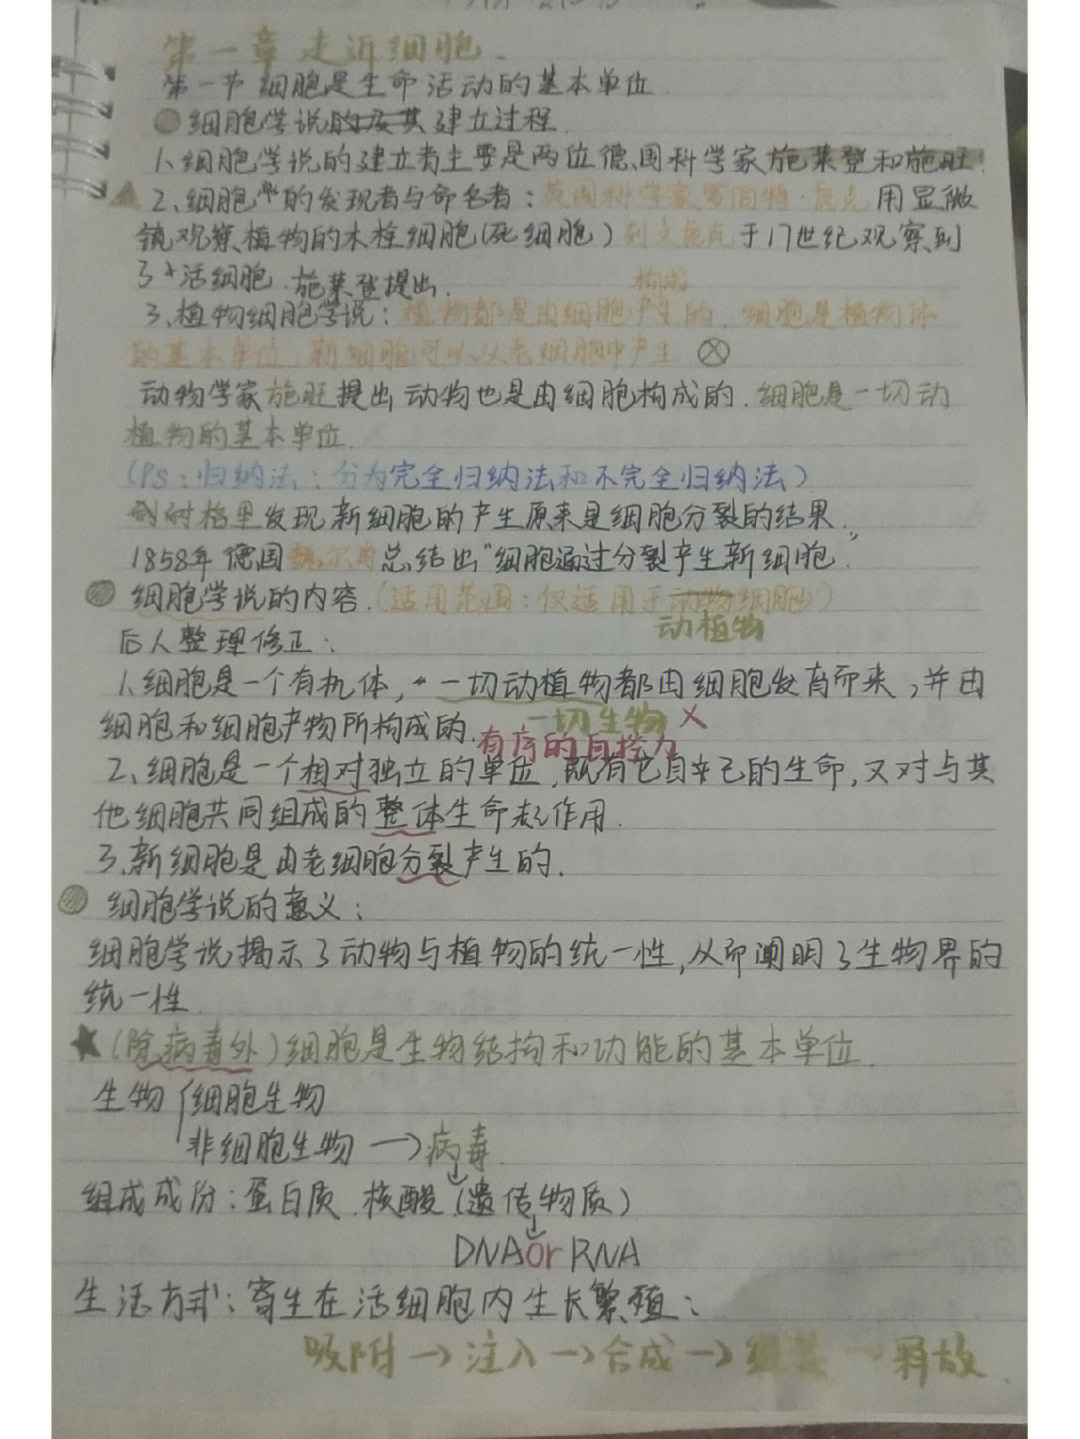 第一章走近细胞.
第一节 细胞是生命活动的基本单位
细胞学说的及其建立过程
1、细胞学说的建立者主要是两位德国科学家施莱登和施旺.
2、细胞的发现者与命名者：英国科学家罗伯特·虎克用显微
镜观察植物的木栓细胞(死细胞)列文虎克于17世纪观察到
了活细胞.施莱登提出.
构成
3、植物细胞学说：植物都是由细胞产生的.细胞是植物体
的基本单位.新细胞可以从老细胞中产生
动物学家施旺提出动物也是由细胞构成的.细胞是一切动
植物的基本单位.
(PS：归纳法：分为完全归纳法和不完全归纳法)
耐格里发现新细胞的产生原来是细胞分裂的结果.
1858年德国魏尔肖总结出"细胞通过分裂产生新细胞."
细胞学说的内容.(适用范围：仅适用于动物细胞)
动植物
后人整理修正：
1、细胞是一个有机体,一切动植物都由细胞发育而来,并由
细胞和细胞产物所构成的.一切生物 ×
有序的自控力
2、细胞是一个相对独立的单位,既有它自己的生命,又对与其
他细胞共同组成的整体生命起作用.
3、新细胞是由老细胞分裂产生的.
细胞学说的意义：
细胞学说揭示了动物与植物的统一性,从而阐明了生物界的
统一性.
★(除病毒外)细胞是生物结构和功能的基本单位.
生物{细胞生物
非细胞生物→病毒.
组成成份：蛋白质.核酸(遗传物质)
DNA or RNA
生活方式：寄生在活细胞内生长繁殖：
吸附→注入→合成→组装→释放.